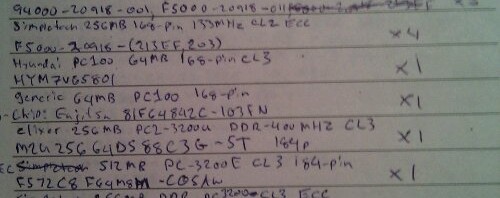 94000-20918-001, F5000-20918-011
Simpletron 256MB 168-pin 133MHz CL2 ECC
F5000-20918-(213EF,203) x4
Hyundai PC100 64MB 168-pin CL3 x1
HYM7V65801
generic 64MB PC100 168-pin x1
chip: Fujitsu 81F64842C-103FN
elixer 256MB PC2-3200U DDR-400MHZ CL3 x1
M2U25664DS88C3G-5T 184p
512MB PC-3200E CL3 184-pin x1
F572C8F64M8M-COSAW
CL3 ECC